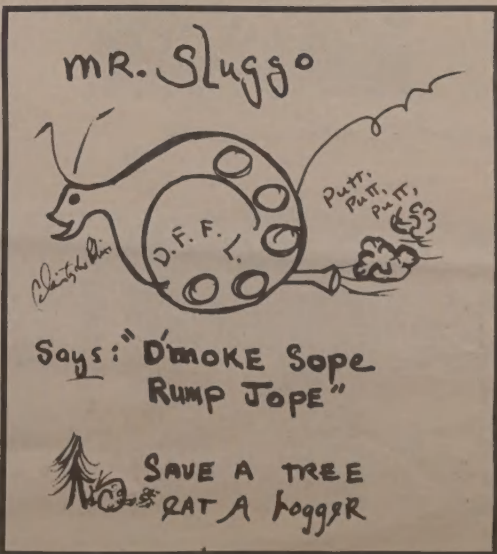 MR. Sluggo
Putt,
Putt,
Putt,
D. F. F. L.
Says: "D'MOKE Sope
Rump Jope"
SAVE A TREE
EAT A LoggeR